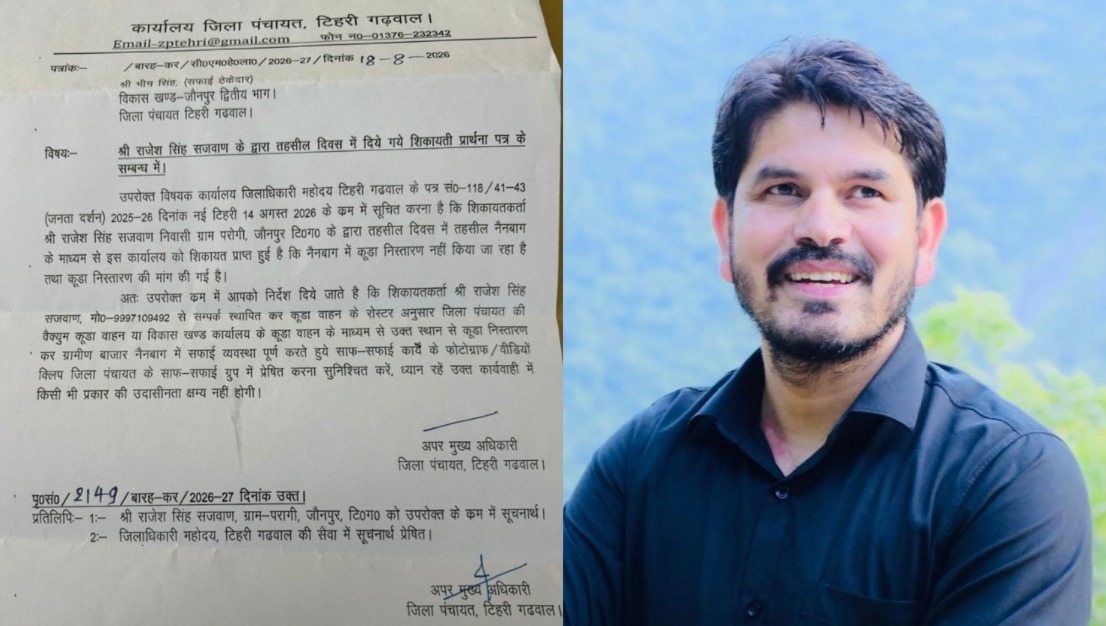 कार्यालय जिला पंचायत, टिहरी गढ़वाल।
Email-zptehri@gmail.com फोन न0-01376-232342
पत्रांक:- /बारह-कर/सी0एम0हे0ला0/2026-27/दिनांक 18-8-2026
श्री भीम सिंह, (सफाई ठेकेदार)
विकास खण्ड-जौनपुर द्वितीय भाग।
जिला पंचायत टिहरी गढवाल।
विषय:- श्री राजेश सिंह सजवाण के द्वारा तहसील दिवस में दिये गये शिकायती प्रार्थना पत्र के
सम्बन्ध में।
उपरोक्त विषयक कार्यालय जिलाधिकारी महोदय टिहरी गढवाल के पत्र सं0-118/41-43
(जनता दर्शन) 2025-26 दिनांक नई टिहरी 14 अगस्त 2026 के क्रम में सूचित करना है कि शिकायतकर्ता
श्री राजेश सिंह सजवाण निवासी ग्राम परोगी, जौनपुर टि0ग0 के द्वारा तहसील दिवस में तहसील नैनबाग
के माध्यम से इस कार्यालय को शिकायत प्राप्त हुई है कि नैनबाग में कूडा निस्तारण नहीं किया जा रहा है
तथा कूडा निस्तारण की मांग की गई है।
अतः उपरोक्त क्रम में आपको निर्देश दिये जाते है कि शिकायतकर्ता श्री राजेश सिंह
सजवाण, मो0-9997109492 से सम्पर्क स्थापित कर कूडा वाहन के रोस्टर अनुसार जिला पंचायत की
वैक्यूम कूडा वाहन या विकास खण्ड कार्यालय के कूडा वाहन के माध्यम से उक्त स्थान से कूडा निस्तारण
कर ग्रामीण बाजार नैनबाग में सफाई व्यवस्था पूर्ण करते हुये साफ-सफाई कार्य के फोटोग्राफ/वीडियों
क्लिप जिला पंचायत के साफ-सफाई ग्रुप में प्रेषित करना सुनिश्चित करें, ध्यान रहें उक्त कार्यवाही में
किसी भी प्रकार की उदासीनता क्षम्य नहीं होगी।
अपर मुख्य अधिकारी
जिला पंचायत, टिहरी गढवाल।
पृ0सं0/2149/बारह-कर/2026-27 दिनांक उक्त।
प्रतिलिपि:- 1:- श्री राजेश सिंह सजवाण, ग्राम-परागी, जौनपुर, टि0ग0 को उपरोक्त के क्रम में सूचनार्थ।
2:- जिलाधिकारी महोदय, टिहरी गढवाल की सेवा में सूचनार्थ प्रेषित।
अपर मुख्य अधिकारी
जिला पंचायत, टिहरी गढवाल।